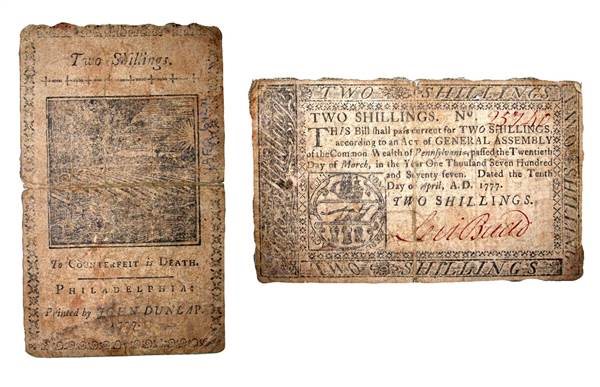 Two Shillings.
To COUNTERFEIT is DEATH.
PHILADELPHIA:
Printed by JOHN DUNLAP.
1777.
TWO SHILLINGS
TWO SHILLINGS. No.
THIS Bill shall pass current for TWO SHILLINGS,
according to an Act of GENERAL ASSEMBLY
of the Common Wealth of Pennsylvania, passed the Twentieth
Day of March, in the Year One Thousand Seven Hundred
and Seventy seven. Dated the Tenth
Day of April, A.D. 1777.
TWO SHILLINGS.
Levi Budd
TWO SHILLINGS